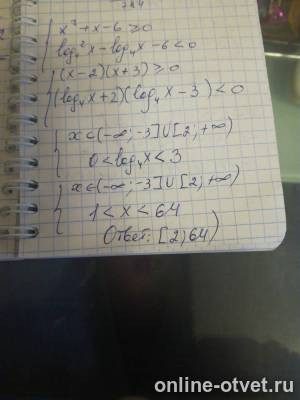 x² + x - 6 ≥ 0
log₄²x - log₄x - 6 < 0
(x-2)(x+3) ≥ 0
(log₄x+2)(log₄x-3) < 0
x ∈ (-∞; -3] U [2; +∞)
0 < log₄x < 3
x ∈ (-∞; -3] U [2; +∞)
1 < x < 64
Ответ: [2; 64)
online-otvet.ru